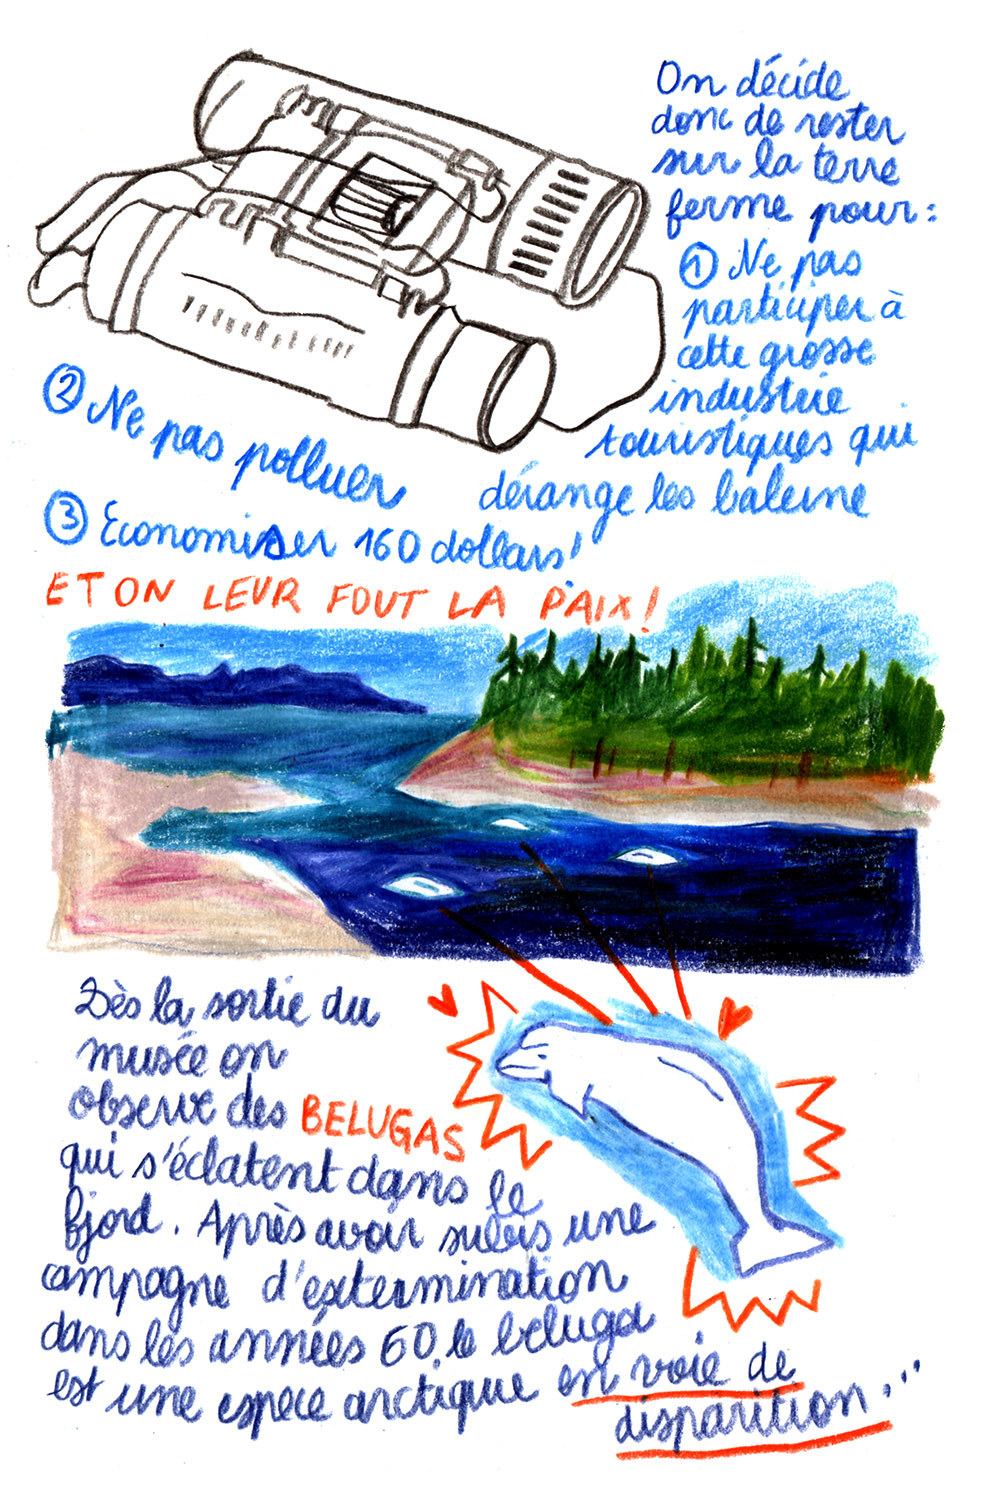 On décide
donc de rester
sur la terre
ferme pour :
① Ne pas
participer à
cette grosse
industrie
touristiques qui
dérange les baleine
② Ne pas polluer
③ Economiser 160 dollars !
ET ON LEUR FOUT LA PAIX !
Dès la sortie du
musée on
observe des BELUGAS
qui s'éclatent dans le
fjord. Après avoir subis une
campagne d'extermination
dans les années 60 le beluga
est une espece arctique en voie de
disparition...